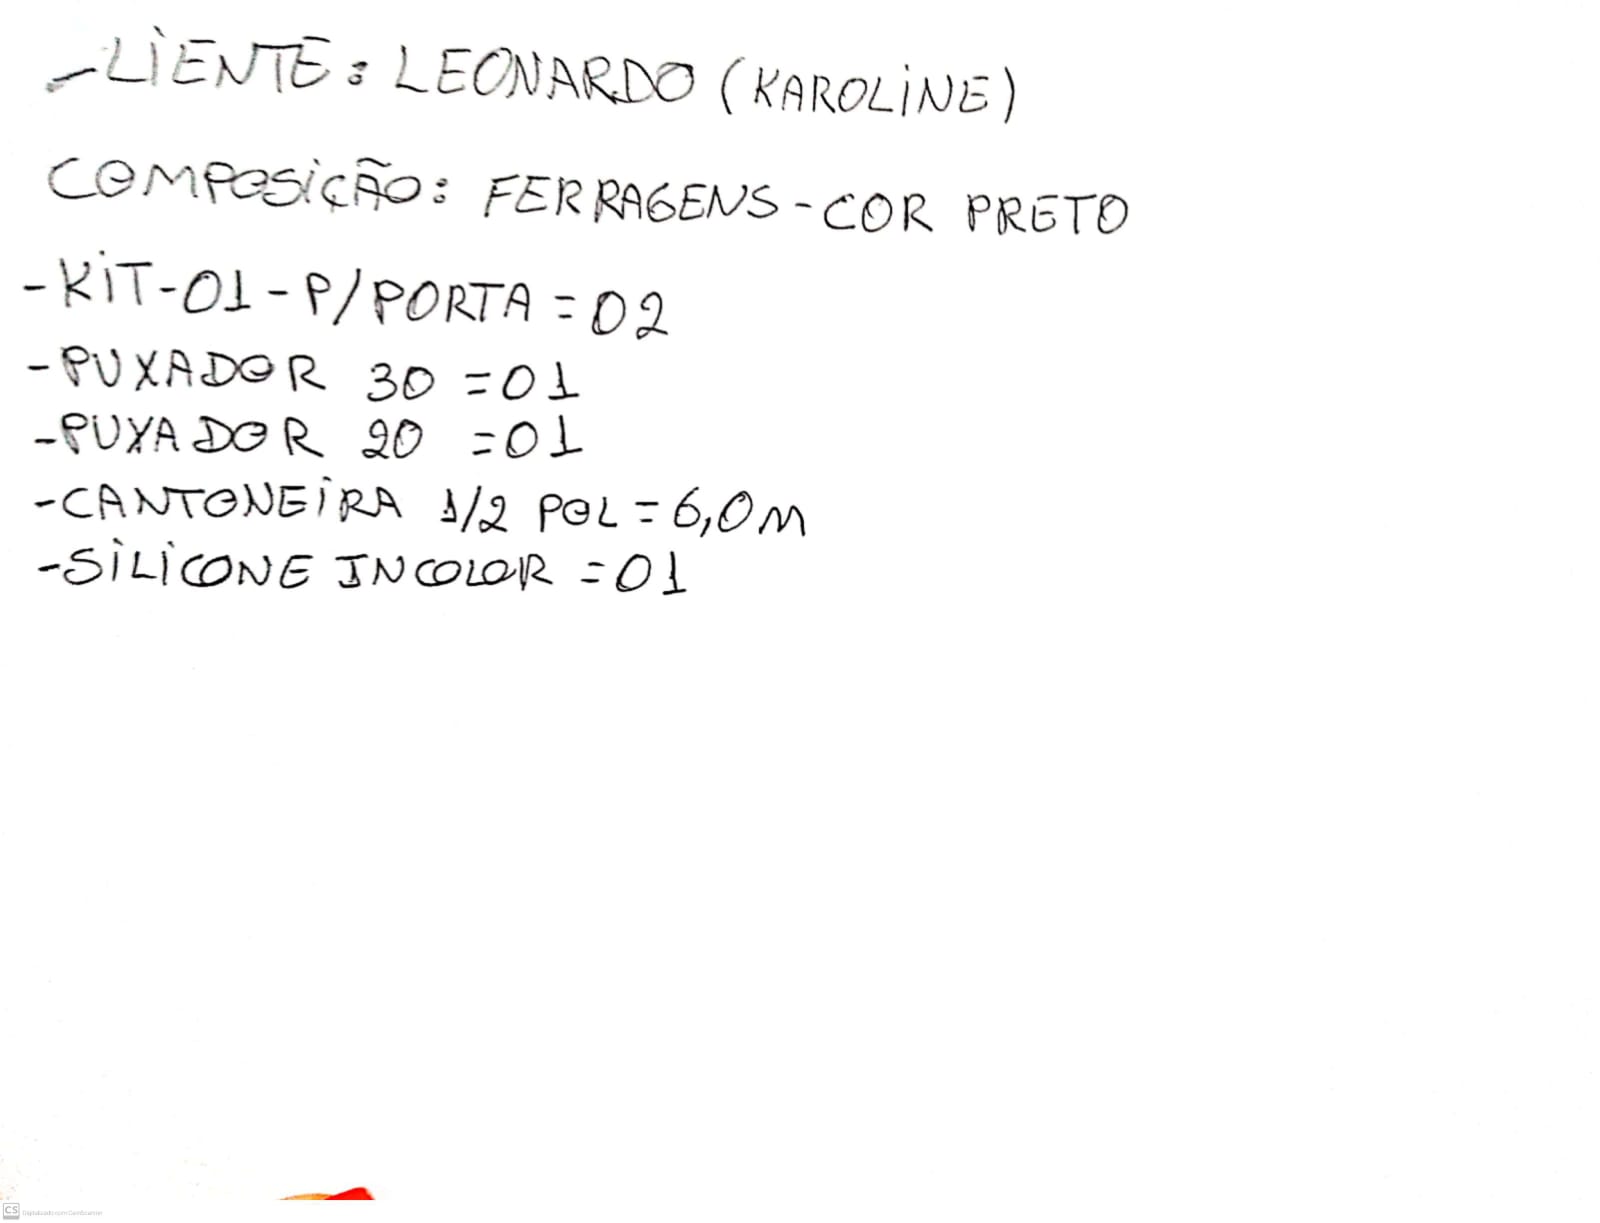 CLIENTE: LEONARDO (KAROLINE)
COMPOSIÇÃO: FERRAGENS - COR PRETO
- KIT-01-P/PORTA = 02
- PUXADOR 30 = 01
- PUXADOR 20 = 01
- CANTONEIRA 1/2 POL = 6,0 M
- SILICONE INCOLOR = 01
CS Digitalizado com CamScanner